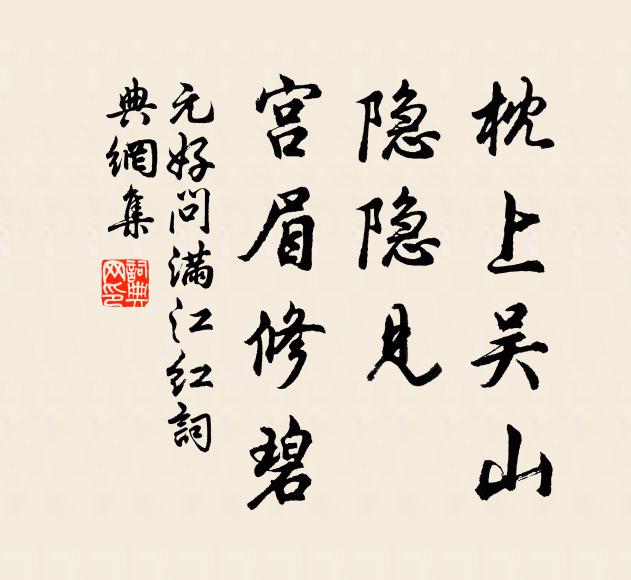 枕上吴山
隐隐见
宫眉修碧
元好问满江红詞
典網集
詞典网印